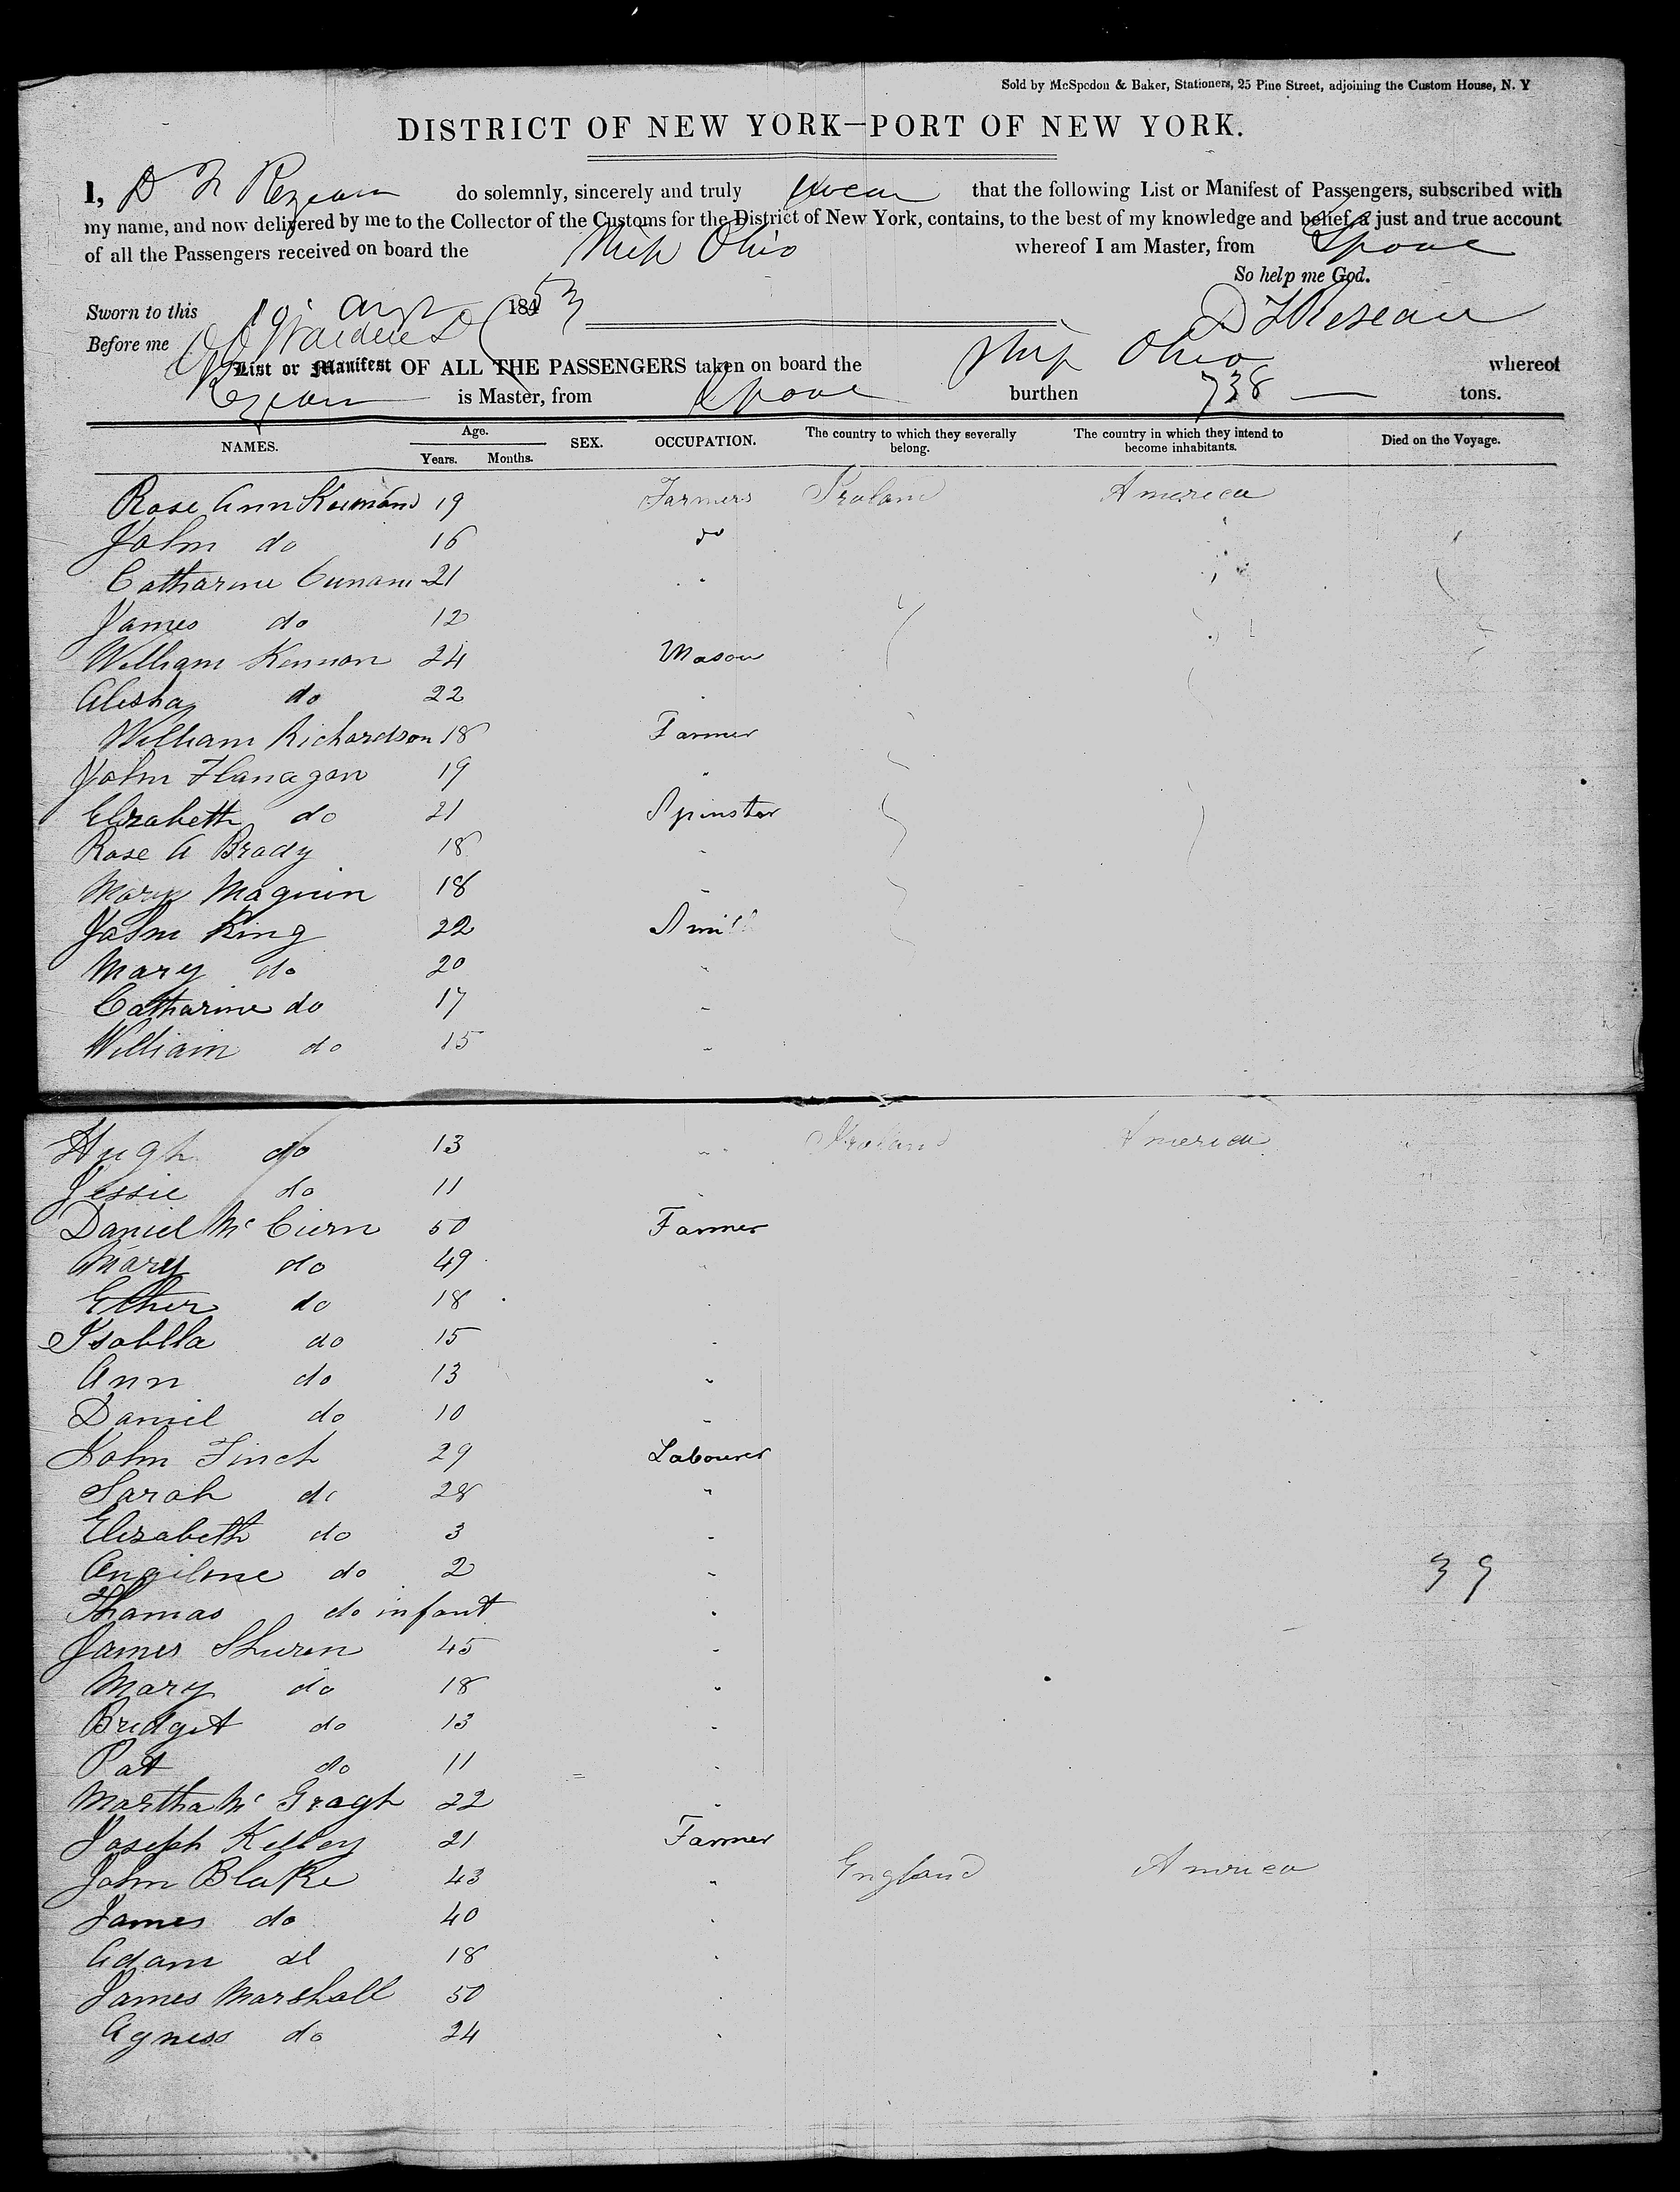 Sold by McSpedon & Baker, Stationers, 25 Pine Street, adjoining the Custom House, N. Y
DISTRICT OF NEW YORK—PORT OF NEW YORK.
I, D do solemnly, sincerely and truly swear that the following List or Manifest of Passengers, subscribed with
my name, and now delivered by me to the Collector of the Customs for the District of New York, contains, to the best of my knowledge and belief, a just and true account
of all the Passengers received on board the Ship Ohio whereof I am Master, from
So help me God.
Sworn to this 1853
Before me
List or Manifest OF ALL THE PASSENGERS taken on board the Ship Ohio whereof
is Master, from burthen 738 tons.
NAMES. Age. Years. Months. SEX. OCCUPATION. The country to which they severally belong. The country in which they intend to become inhabitants. Died on the Voyage.
Rose Ann 19 Farmers Ireland America
John do 16 do
Catharine 21 "
James do 12
William Kennon 24 Mason
Alesha do 22 "
William Richardson 18 Farmer
John Flanagan 19 "
Elizabeth do 21 Spinster
Rose A Brady 18 "
Mary Maguin 18 "
John King 22
Mary do 20 "
Catharine do 17 "
William do 15 "
Hugh do 13 " Ireland America
Jessie do 11 "
Daniel Mc Ciern 50 Farmer
Mary do 49 "
do 18 "
Isablla do 15 "
Ann do 13 "
Daniel do 10 "
John Finch 29 Labourer
Sarah do 28 "
Elizabeth do 3 "
do 2 " 39
Thomas do infant "
James 45 "
Mary do 18 "
Bridget do 13 "
Pat do 11 "
Martha Mc Gragh 22 "
Joseph Kelley 21 Farmer
John Blake 43 " England America
James do 40 "
Adam 18 "
James Marshall 50 "
Agness do 24 "